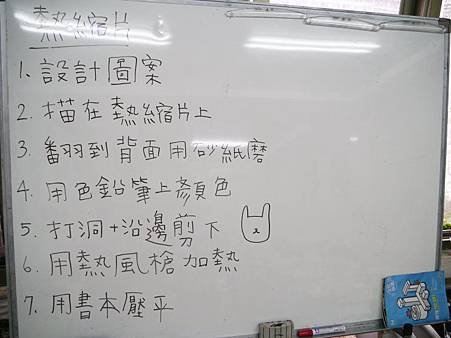 熱縮片
1. 設計圖案
2. 描在熱縮片上
3. 翻到背面用砂紙磨
4. 用色鉛筆上顏色
5. 打洞+沿邊剪下
6. 用熱風槍加熱
7. 用書本壓平